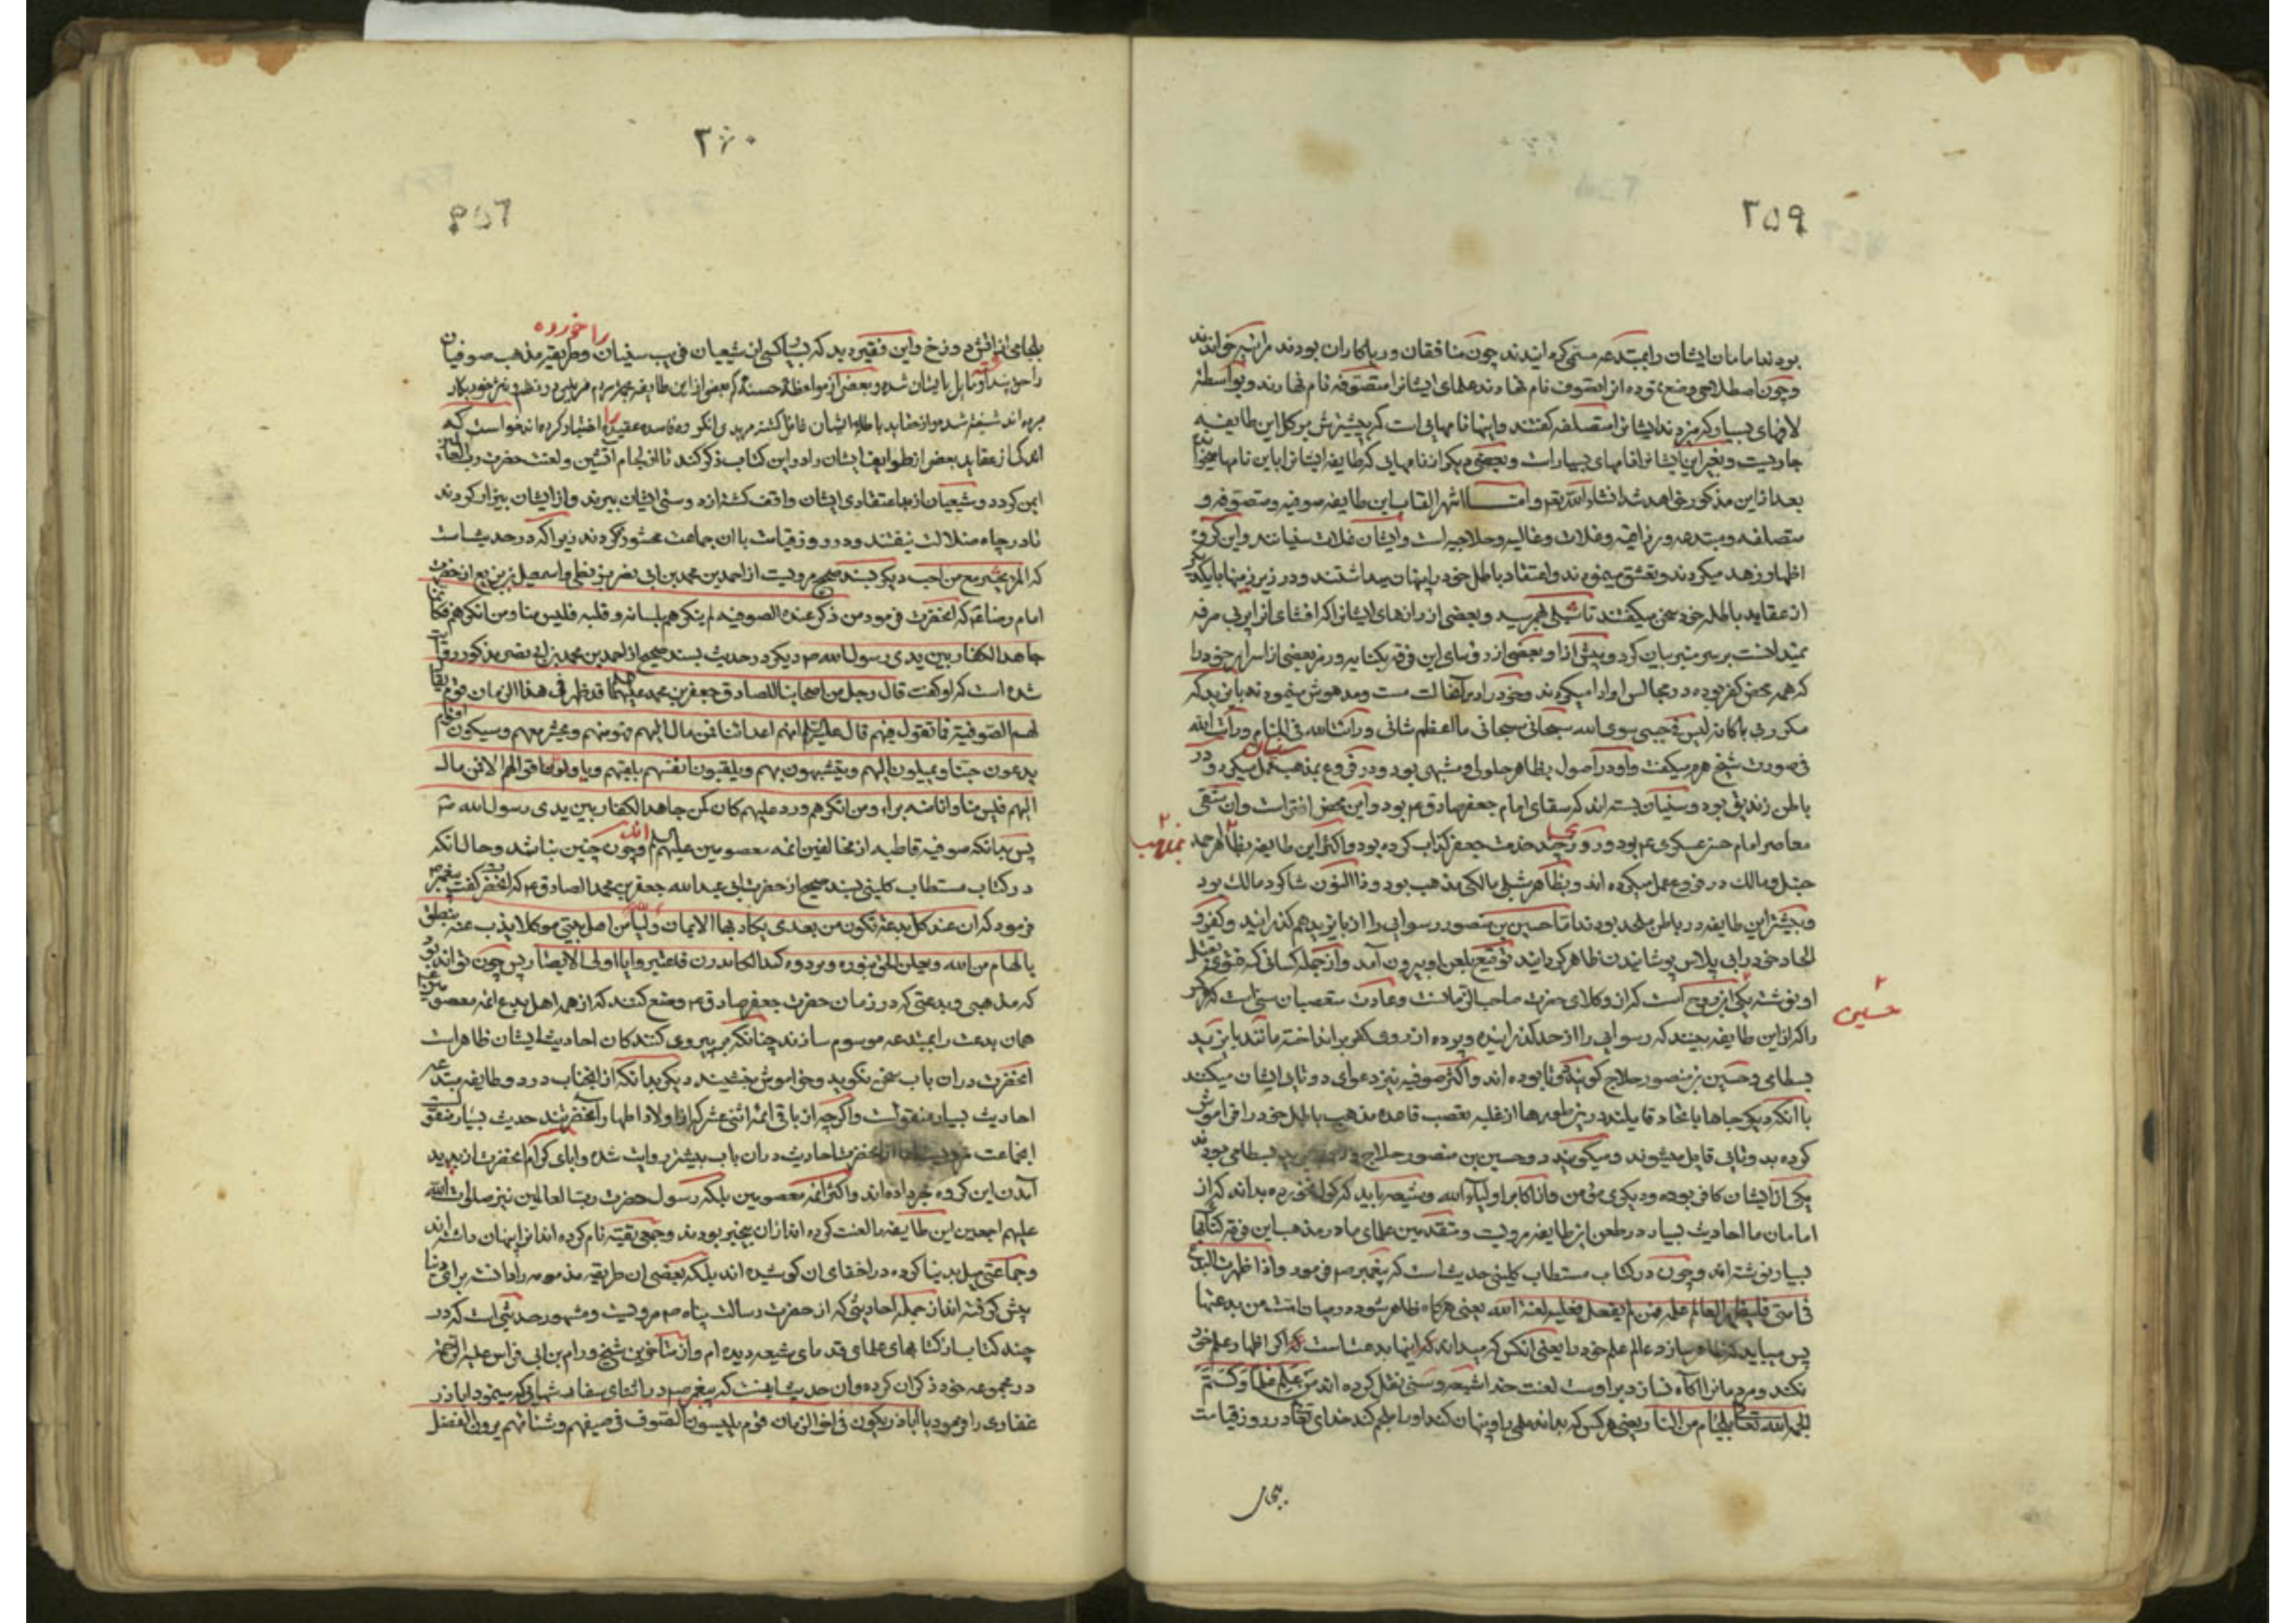 ۲۵۹
بودند امامان ایشان را مبتدعه مسمی گردانیدند چون منافقان و ریاکاران بودند مرائیه خواندند
و چون اصطلاحی وضع نموده انرا تصوف نام نهادند علمای ایشانرا متصوفه نام نهادند و بواسطه
لافهای بسیار که میزدند ایشانرا متصلفه گفتند و اینها نامهایی است که بیشترش بر کل این طایفه
جاریست و بغیر این ایشانرا نامهای بسیار است و بعضی دیگر از نامهایی که طایفه ایشانرا باین نامها
بعد از این مذکور خواهد شد انشاء الله تعم و اما اشهر القاب این طایفه صوفیه و متصوفه و
متصلفه و مبتدعه و زراقیه و غلات و غالیه و حلاجیه است و ایشان غلات سنیانند و این گروه
اظهار زهد میکردند و تعشق مینمودند و اعتقاد باطل خود را پنهان میداشتند و در زیر زمینها با یکدیگر
از عقاید باطله خود سخن میگفتند تا شبلی بهم رسید و بعضی از رازهای ایشانرا که افشای آنرا بی مرفه
نمیدانست بر سر منبر بیان کرد و پیش از او بعضی از رؤسای این فرقه بکنایه و رمز بعضی از اسرار خود را
که همه محض کفر بوده در مجالس او ادا میکردند و خود را در آنحالت مست و مدهوش مینمودند بایزید که
مکرر بی باکانه لیس فی جبتی سوی الله سبحانی سبحانی ما اعظم شانی و رایت الله فی المنام و رایت الله
فی صورت شیخ هرم میگفت و او در اصول بظاهر حلولی و مشبهی بود و در فروع بمذهب سنیان عمل میکرد و در
باطن زندیق بود و سنیان بسته اند که سقای امام جعفر صادق ع بود و این محض افتراست و آن شقی
معاصر امام حسن عسکری ع بود و روزی چند خدمت جعفر کذاب کرده بود و اکثر این طایفه بظاهر احمد
حنبل و مالک در فروع عمل میکرده اند و بظاهر شبلی مالکی مذهب بود و ذا النون شاگرد مالک بود
و بیشتر این طایفه در باطن ملحد بودند اما تا حسین بن منصور رسوایی را از بایزید هم گذرانید و کفر و
الحاد خود را بی پلاس پوشانیدن ظاهر گردانید توقیع بلعن او بیرون آمد و از جمله کسانی که فتوی بقتل
او نوشته یکی ابن روح است که از وکلای حضرت صاحب الزمانست و عادت متعصبان سنی است که هر
حسین
را که از این طایفه ببینند که رسوایی را از حد گذرانیده و پرده از روی کفر برانداخته مانند بایزید
بسطامی و حسین بن منصور حلاج گویند دو تا بوده اند و اکثر صوفیه نیز دعوای دوتایی ایشان میکنند
با آنکه دیگر جاها باتحاد قایلند در این طورها از غلبه تعصب قاعده مذهب باطل خود را فراموش
کرده بدوتایی قایل میشوند و میگویند دو حسین بن منصور حلاج و دو بایزید بسطامی بودند
یکی از ایشان کافر بوده و دیگری مؤمن و از اکابر اولیاء الله و شیعه باید که گول نخورده بداند که از
امامان ما احادیث بسیار در طعن این طایفه مرویست و متقدمین علمای ما در مذهب این فرقه کتابها
بسیار نوشته اند و چون در کتاب مستطاب کلینی حدیث است که پیغمبر ص فرمود و اذا ظهرت البدع
فی امتی فلیظهر العالم علمه فمن لم یفعل فعلیه لعنة الله یعنی هرگاه ظاهر شود در میان امت من بدعتها
پس میباید که ظاهر سازد عالم علم خود را یعنی آنکس که میداند که اینها بدعتست که اگر اظهار علم خود
نکند و مردمانرا آگاه نسازد بر اوست لعنت خدا شیعه و سنی نقل کرده اند من علم علما و کتم
الجمه الله تعالی بلجام من النار یعنی هر کس که بداند علمی را و پنهان کند او را بلجم کند خدای تعالی در روز قیامت
بلجا
۲۶۰
بلجامی از آتش دوزخ و این فقیر دید که بسیار کسی از شیعیان فریب سنیان را خورده و طریقه مذهب صوفیان
را حق پنداشته و مایل بایشان شده و بعضی از مواعظه حسنه که بعضی از این طایفه بجهة مردم فریبی در نظم و نثر خود بکار
برده اند شیفته شده و از عقاید باطله ایشان غافل گشته مریدی انگروه فاسد عقیده را اختیار کرده اند خواست که
اندکی از عقاید بعضی از طوایف ایشان را در این کتاب ذکر کند تا از لجام آتشین و لعنت حضرت رب العالمین
ایمن گردد و شیعیان از بد اعتقادی ایشان واقف گشته از دوستی ایشان ببرند و از ایشان بیزار گردند
تا در چاه ضلالت نیفتند و در روز قیامت با ان جماعت محشور نگردند زیرا که در حدیث است
که المرء یحشر مع من احب دیگر بسند صحیح مرویست از احمد بن محمد بن ابی نصر بزنطی و اسمعیل بن بزیع از حضرت
امام رضا ع که آنحضرت فرمود من ذکر عنده الصوفیه و لم ینکرهم بلسانه و قلبه فلیس منا و من انکرهم فکانما
جاهد الکفار بین یدی رسول الله ص دیگر در حدیث بسند صحیح از احمد بن محمد بن ابی نصر مذکور روایت
شده است که او گفت قال رجل من اصحابنا للصادق جعفر بن محمد علیهما قد ظهر فی هذا الزمان قوم یقال
لهم الصوفیه فما تقول فیهم قال علیه السلام انهم اعدائنا فمن مال الیهم فهو منهم و یحشر معهم و سیکون اقوام
یدعون حبنا و یمیلون الیهم و یتشبهون بهم و یلقبون انفسهم بلقبهم و یاولون اقوالهم الا فمن مال
الیهم فلیس منا و انا منه براء و من انکرهم و رد علیهم کان کمن جاهد الکفار بین یدی رسول الله ص
پس بدانکه صوفیه قاطبه از مخالفین ائمه معصومین علیهم السلام اند و چون چنین نباشد و حال انکه
در کتاب مستطاب کلینی بسند صحیح از حضرت ابی عبد الله جعفر بن محمد الصادق ع که انحضرت گفت پیغمبر ص
فرمود که ان عند کل بدعة تکون من بعدی یکاد بها الایمان ولیا من اهل بیتی موکلا یذب عنه ینطق
بالهام من الله و یعلن الحق بنوره و یرد کید الکائدین فاعتبروا یا اولی الابصار پس چون تواند بود
که مذهبی و بدعتی که در زمان حضرت جعفر صادق ع وضع کنند که از همه اهل بدع ائمه معصومین
همان بدعت را بمبتدعه موسوم سازند چنانکه بر پیروی کنندکان احادیث ایشان ظاهر است
انحضرت در ان باب سخن نگوید و خواموش بنشیند دیگر بدانکه از انجناب در رد طایفه مبتدعه
احادیث بسیار منقولست و اگرچه از باقی ائمه اثنی عشر که از اولاد اطهار آنحضرتند حدیث بسیار منقولست
اما از آنحضرت احادیث در ان باب بیشتر روایت شده و ابای کرام انحضرت از پدید
آمدن این گروه خبر داده اند و اکثر ائمه معصومین بلکه رسول حضرت رب العالمین نیز صلوات الله
علیهم اجمعین این طایفه را لعنت کرده اند از ان بیخبر بودند و جمعی تقیه نام کرده اند انرا پنهان داشته اند
و جماعتی میل بدنیا کرده در اخفای ان کوشیده اند بلکه بعضی ان طریقه مذمومه را دانسته برای دنیا
پیش گرفته اند از جمله احادیثی که از حضرت رسالت پناه ص مرویست و مشهور حدیثی است که در
چند کتاب از کتابهای علمای قدمای شیعه دیده ام و از متاخرین شیخ ورام بن ابی فراس علیه الرحمه
در مجموعه خود ذکر ان کرده و ان حدیث اینست که پیغمبر ص در اثنای سفارشهائی که مینمود اباذر
غفاری را فرمود یا اباذر یکون فی اخر الزمان قوم یلبسون الصوف فی صیفهم و شتائهم یرون الفضل